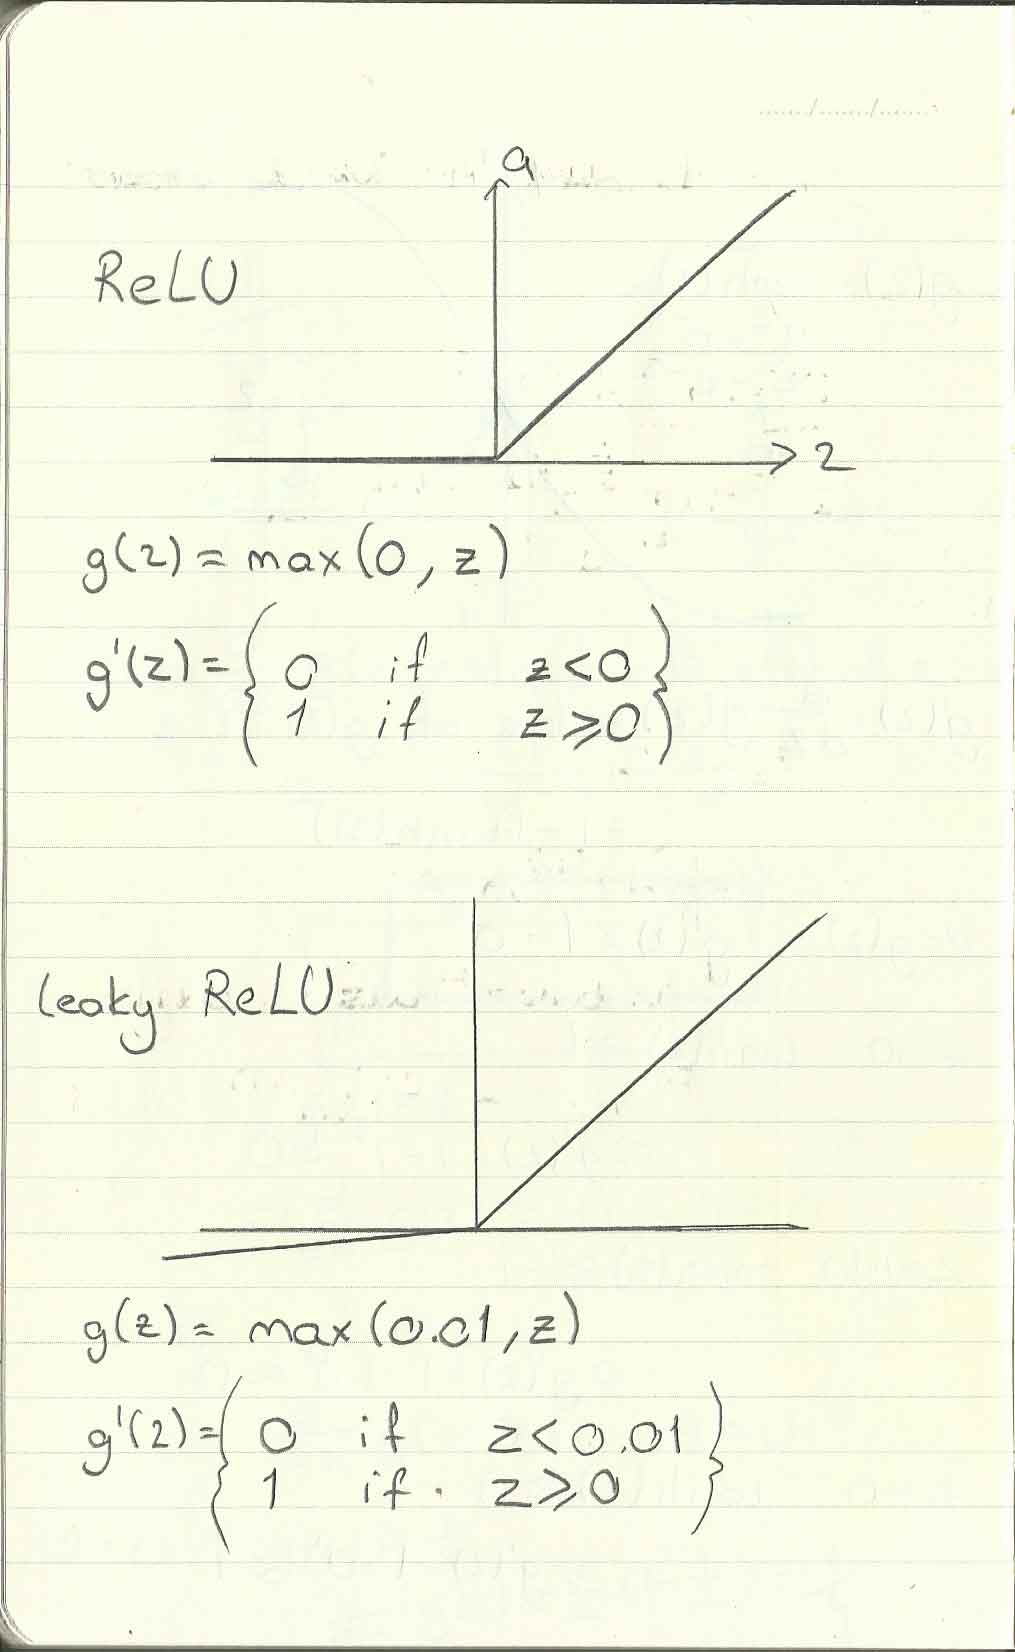 a
ReLU
z
g(z) = max(0, z)
g'(z) = { 0 if z<0
1 if z≥0 }
leaky ReLU
g(z) = max(0.01, z)
g'(z) = { 0 if z<0.01
1 if. z≥0 }